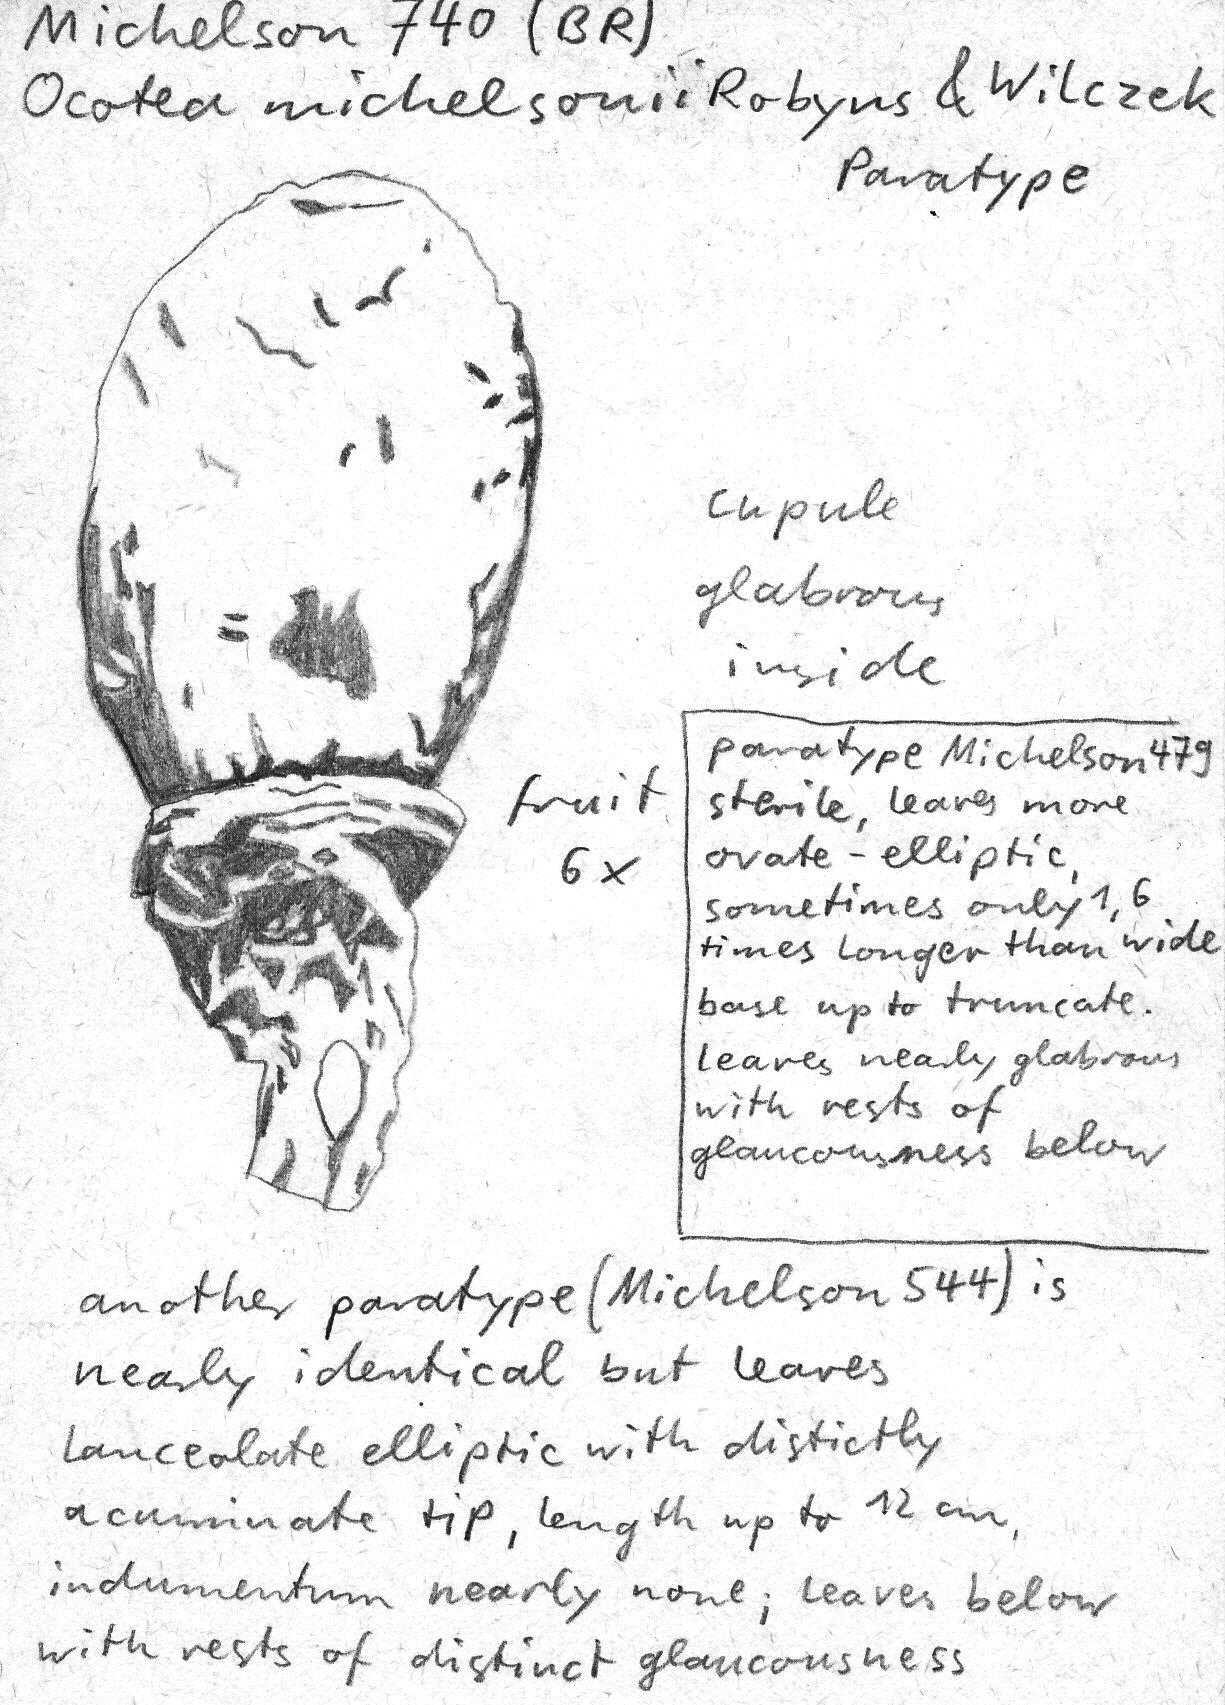 Michelson 740 (BR)
Ocotea michelsonii Robyns & Wilczek
Paratype
cupule
glabrous
inside
fruit
6x
paratype Michelson 479
sterile, leaves more
ovate-elliptic,
sometimes only 1,6
times longer than wide
base up to truncate.
leaves nearly glabrous
with rests of
glaucousness below
another paratype (Michelson 544) is
nearly identical but leaves
lanceolate elliptic with distictly
acuminate tip, length up to 12 cm,
indumentum nearly none; leaves below
with rests of distinct glaucousness